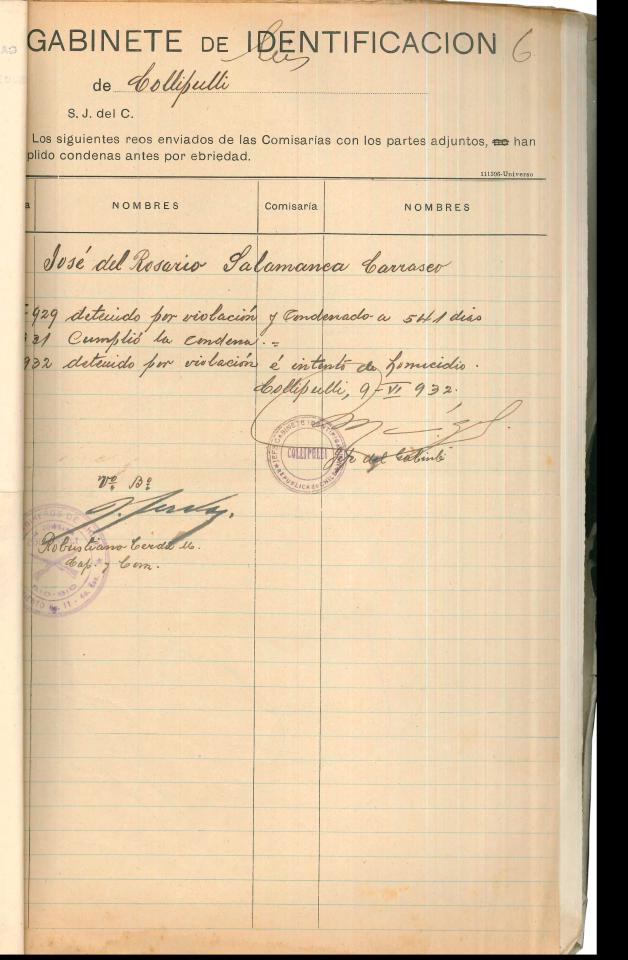 GABINETE DE IDENTIFICACION
6
de Collipulli
S. J. del C.
Los siguientes reos enviados de las Comisarías con los partes adjuntos, no han
plido condenas antes por ebriedad.
111396-Universo
a NOMBRES Comisaría NOMBRES
José del Rosario Salamanca Carrasco
929 detenido por violación y condenado a 541 dias
31 Cumplió la condena.=
932 detenido por violación é intento de homicidio.
Collipulli, 9-VI-932.
JEFE GABINETE IDENTIF
COLLIPULLI
REPUBLICA DE CHILE
Jefe del Gabinete
Vº Bº
Robustiano Cerda M.
Cap. y Com.
BIO-BIO